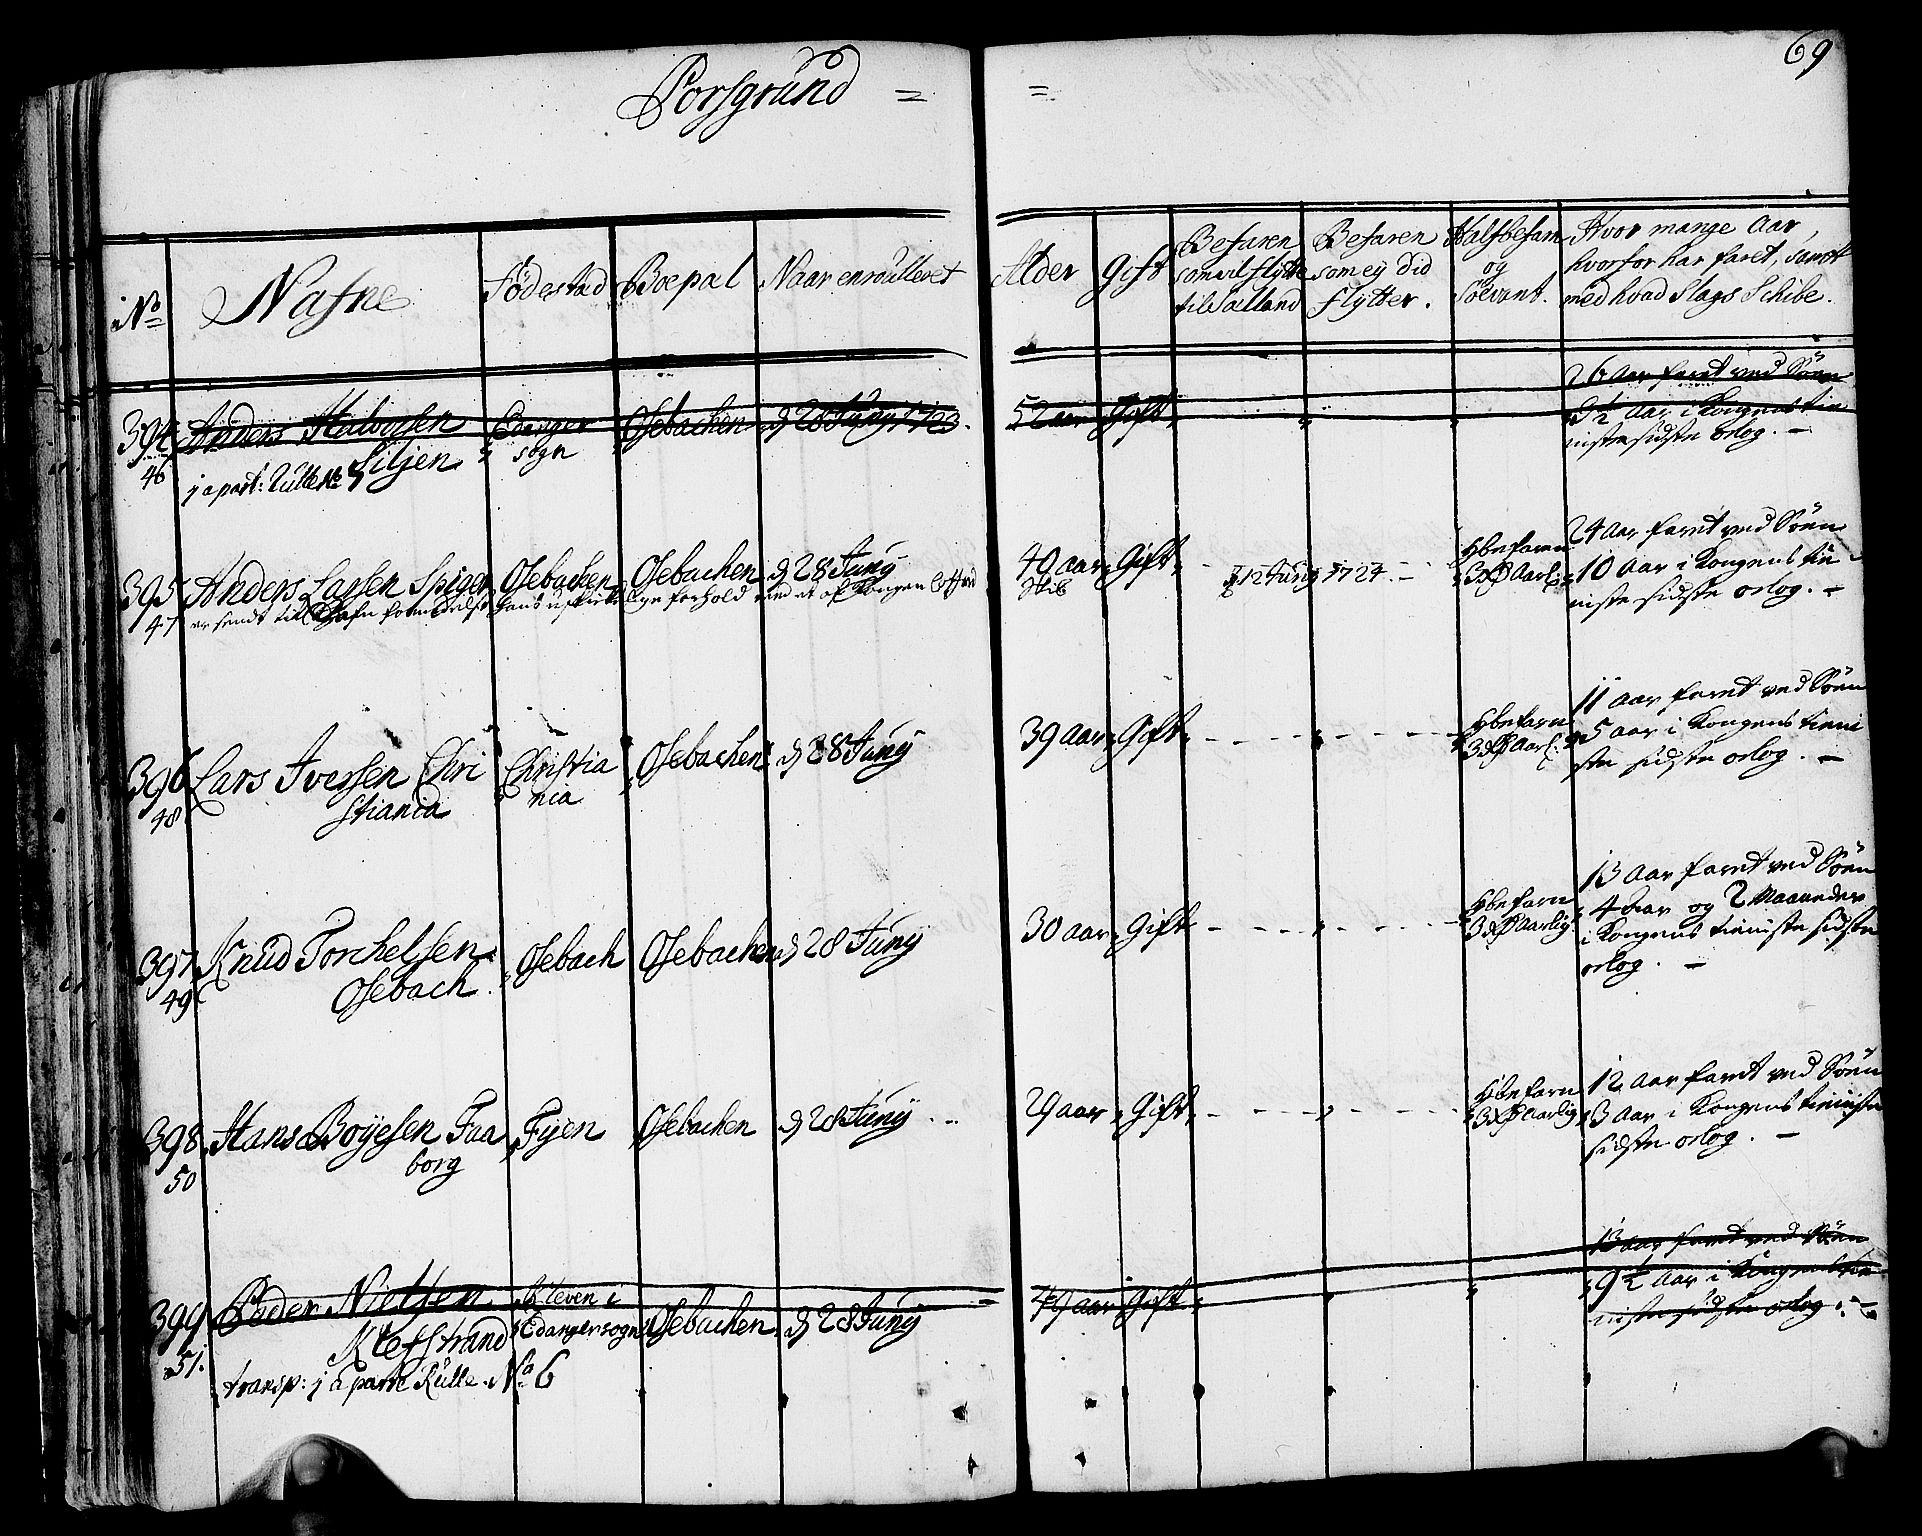 Porsgrund =
=
69
No
Nafne
Födestad
Boepæl
Naar enroulleret
Alder
gift
Befaren
som vil flytte
til Salland
Befaren
som ey did
flytter.
Halfbefarn
og
Söevant.
Hvor mange Aar
hvorfor har faret, samt
med hvad Slags Schibe.
394
46
Anders Halvorsen
Siljen
j apart: Rulle No
Edanger
sogn
Osebachen
d 28 Juny 1723.
52 aar
Gift
26 Aar faret ved Söen
3½ Aar i Kongens tie
niste sidste orlog. -
395
47
Anders Larsen Spiger
Osebacken
Osebachen
d 28 Juny
er sendt til
forhold
40 aar
Gift
12 Juny 1724. -
Hbefaren
3 Aarl
24 Aar faret ved Söen
10 Aar i Kongens tie
niste sidste orlog. -
396
48
Lars Iversen Chri
stiania
Christia
nia
Osebachen
d 28 Juny
39 Aar
Gift
Hbefarn
3 Aarl
11 Aar faret ved Söen
5 aar i Kongens tieni
ste sidste orlog. -
397
49
Knud Torchelsen
Osebach
Osebach
Osebachen
d 28 Juny
30 aar
Gift
Hbefarn
3 Aarlig
13 Aar faret ved Söen
4 aar og 2 Maaneder
i Kongens tieniste sidste
orlog. -
398
50
Hans Boyesen Faa
borg
Fyen
Osebachen
d 28 Juny
29 aar
Gift
Hbefarn
3 Aarlig
12 Aar faret ved Söen
3 Aar i Kongens tieniste
sidste orlog. -
399
51.
Peder Nielsen
Klefstrand
transp: j aparte Rulle No 6
Kleven i
Edangersogn
Osebachen
d 28 Juny
49 aar
Gift
13 aar faret ved Söen
9½ Aar i Kongens tie
niste sidste orlog. -